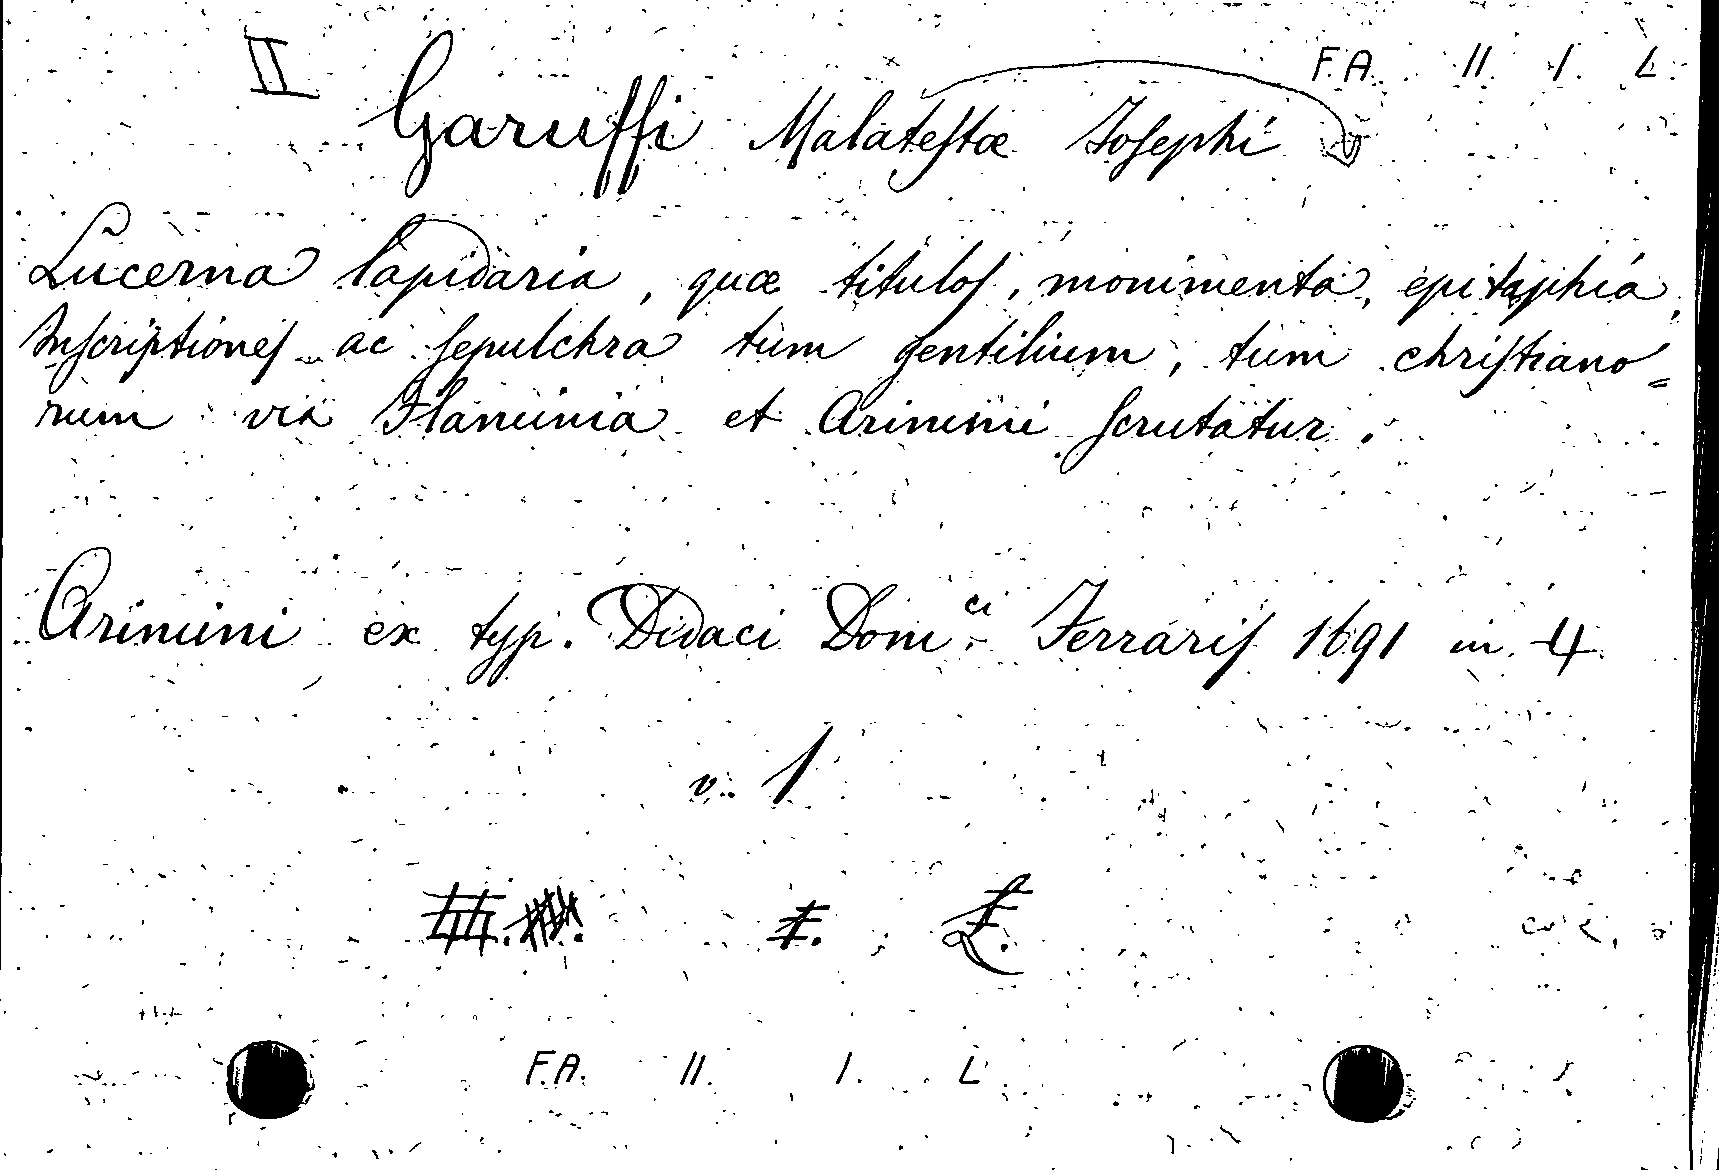 II F.A. II. I. L.
Garuffi Malatestæ Josephi
Lucerna lapidaria, quæ titulos, monimenta, epitaphia,
Inscriptiones ac sepulchra tum gentilium, tum christiano=
rum via Flaminia et Arimini scrutatur.
Arimini ex typ. Didaci Dom.ci Ferraris 1691 in 4
v. 1
F.A. II. I. L